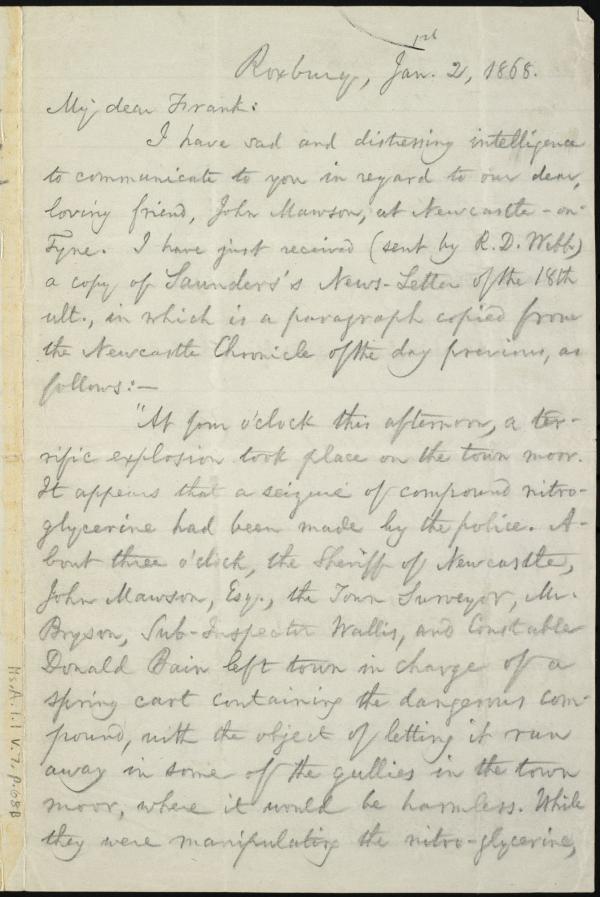 Roxbury, Jan. 2, 1868.
My dear Frank:
I have sad and distressing intelligence
to communicate to you in regard to our dear,
loving friend, John Mawson, at Newcastle-on-
Tyne. I have just received (sent by R. D. Webb)
a copy of Saunders's News-Letter of the 18th
ult., in which is a paragraph copied from
the Newcastle Chronicle of the day previous, as
follows:—
"At four o'clock this afternoon, a ter-
rific explosion took place on the town moor.
It appears that a seizure of compound nitro-
glycerine had been made by the police. A-
bout three o'clock, the Sheriff of Newcastle,
John Mawson, Esq., the Town Surveyor, Mr.
Bryson, Sub-Inspector Wallis, and Constable
Donald Bain left town in charge of a
spring cart containing the dangerous com-
pound, with the object of letting it run
away in some of the gullies in the town
moor, where it would be harmless. While
they were manipulating the nitro-glycerine,
Ms.A.1.1 V.7, P.68B